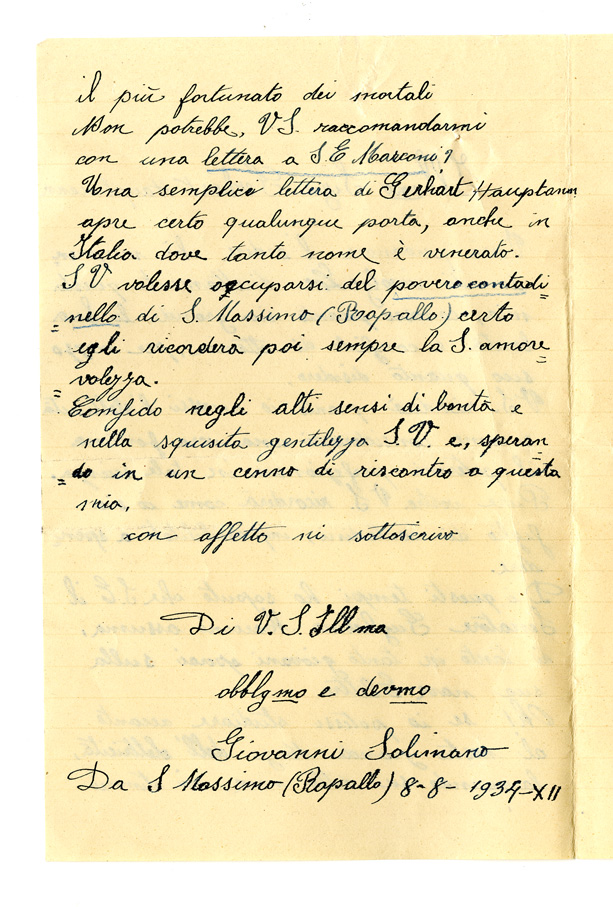 il più fortunato dei mortali
Non potrebbe, V S. raccomandarmi
con una lettera a S. E Marconi?
Una semplice lettera di Gerhart Hauptamn
apre certo qualunque porta, anche in
Italia dove tanto nome è venerato.
S V volesse occuparsi del povero contadi
=nello di S. Massimo (Rapallo) certo
egli ricorderà poi sempre la S. amore=
=volezza.
Confido negli alti sensi di bontà e
nella squisita gentilezza S. V. e, speran=
=do in un cenno di riscontro a questa
mia,
con affetto mi sottoscrivo
Di V. S. Illma
obblgmo e devmo
Giovanni Solimano
Da S Massimo (Rapallo) 8-8-1934-XII